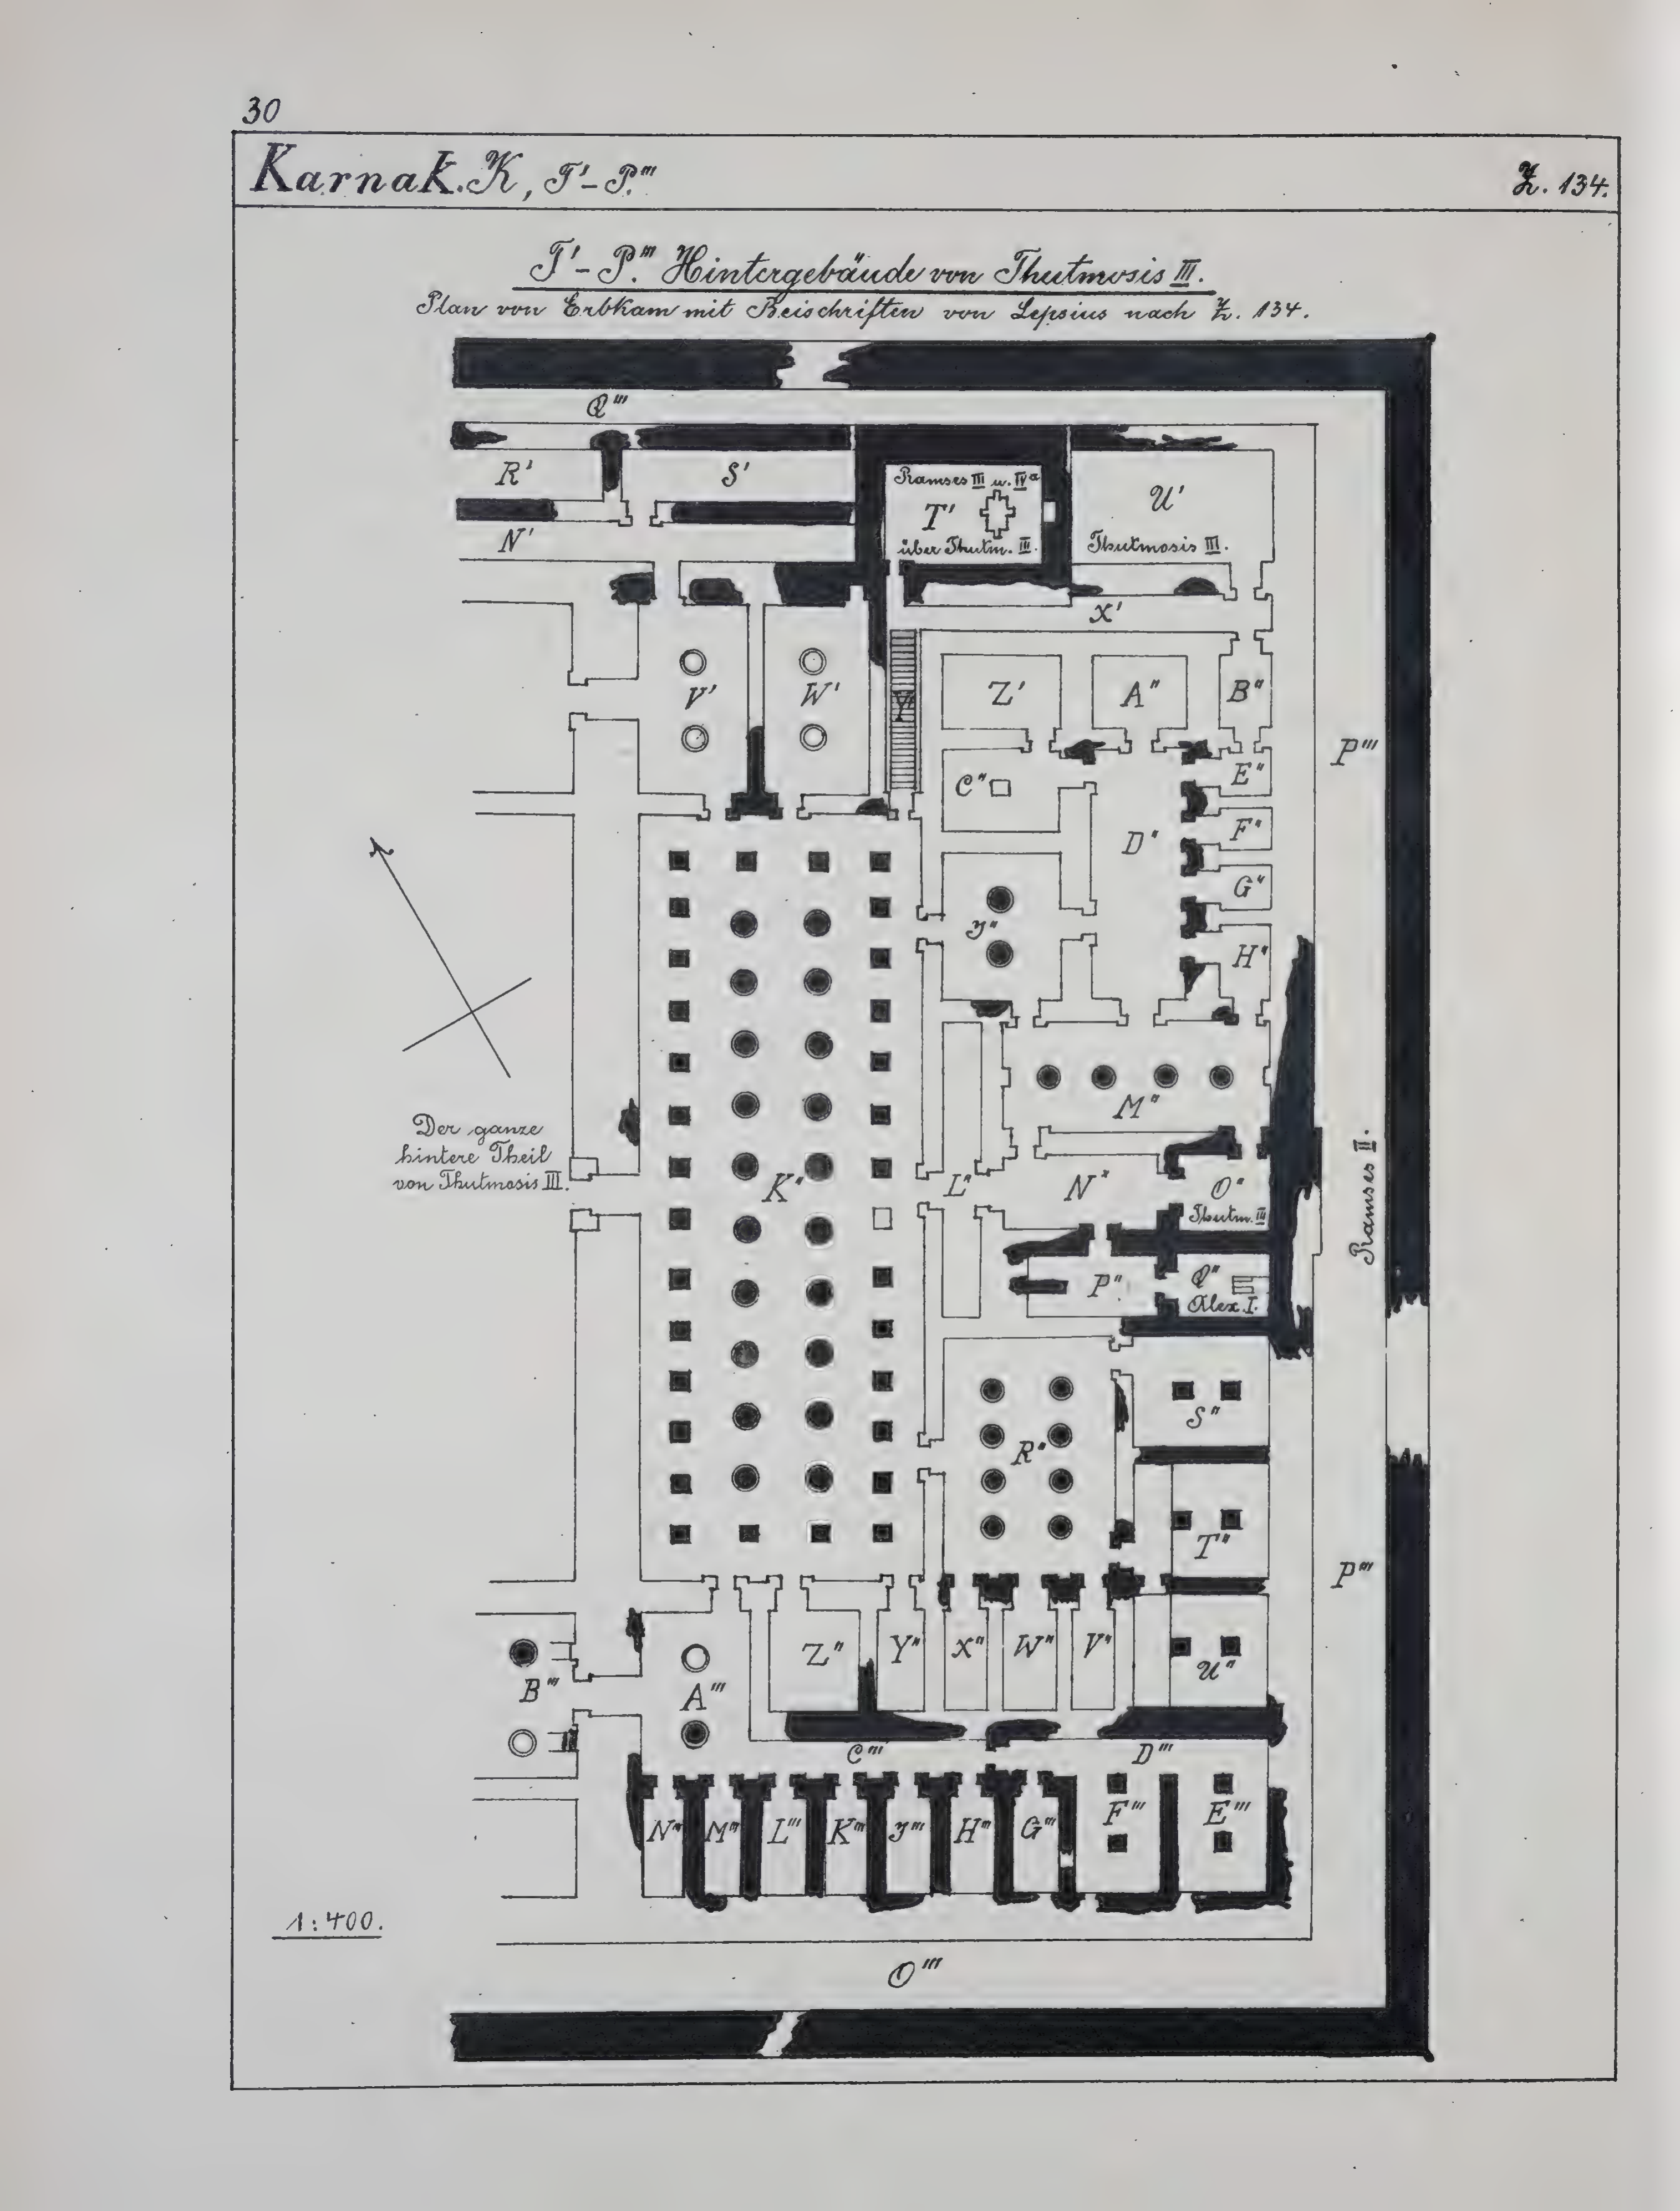 30
Karnak. K, T'-P'''.
Z. 134.
T'-P'''. Hintergebäude von Thutmosis III.
Plan von Erbkam mit Beischriften von Lepsius nach Z. 134.
Q'''
R'
S'
Ramses III u. IVa
T'
über Thutm. III.
U'
Thutmosis III.
N'
X'
V'
W'
Y'
Z'
A''
B''
P'''
C''
E''
D''
F''
G''
J''
H''
M''
Der ganze
hintere Theil
von Thutmosis III.
K''
L''
N''
O''
Thutm. III
Ramses II.
P''
Q''
Alex I.
S''
R''
T''
P'''
Z''
Y''
X''
W''
V''
U''
B'''
A'''
C'''
D'''
N'''
M'''
L'''
K'''
J'''
H'''
G'''
F'''
E'''
1:400.
O'''